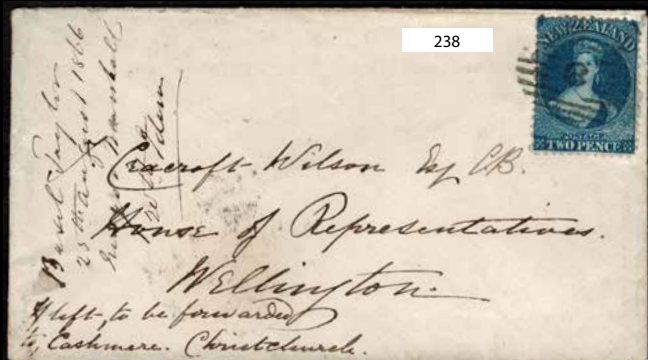 238
NEW ZEALAND
POSTAGE
TWO PENCE
Basil Taylor
25th August 1866
Cracroft Wilson Esq CB.
House of Representatives.
Wellington.
If left, to be forwarded
to, Cashmere. Christchurch.